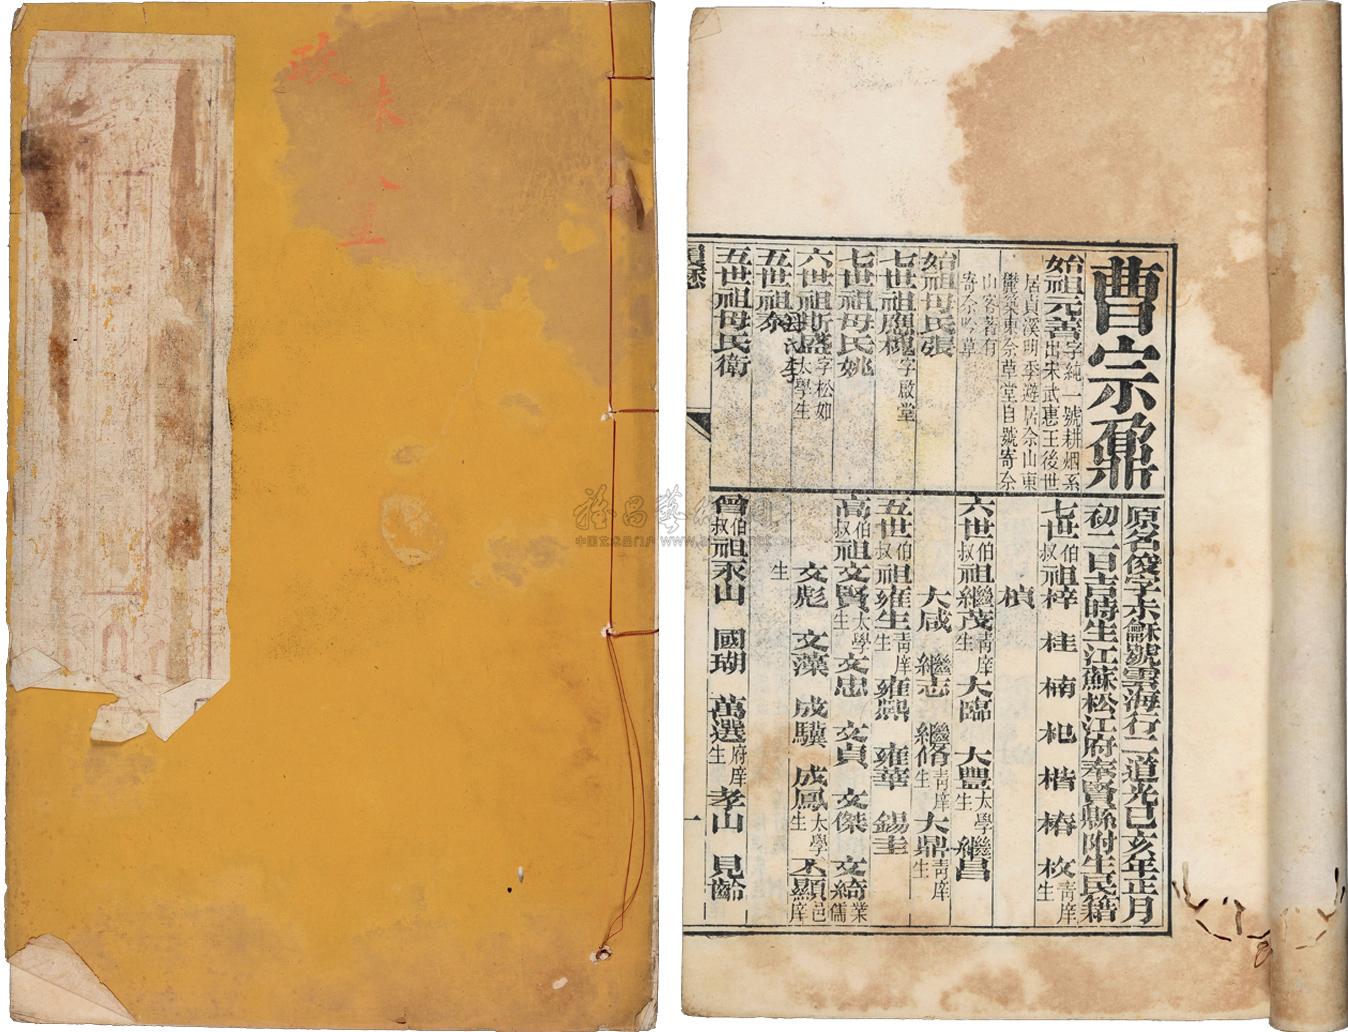 政
未
五
曹宗鼐
原名俊字禾龢號雲海行二道光己亥年正月
初二日吉時生江蘇松江府奉賢縣附生民籍
始祖元善字純一號耕烟系
出宋武惠王後世
居貞溪明季遊居佘山東
麓築東佘草堂自號寄佘
山客著有
寄佘吟草
始祖母氏張
七世祖應槐字啟堂
七世祖母氏姚
六世祖斯盛字松如
太學生
母氏李
五世祖泰
五世祖母氏衛
七世伯叔祖梓 桂 楠 杞 楷 椿 枚青庠生
楨
六世伯叔祖繼茂青庠生 大臨 大豐太學生 繼昌
大咸 繼志 繼脩青庠生 大鼎青庠生
五世伯叔祖雍生青庠生 雍熙 雍華 錫圭
高伯叔祖文賢太學生 文忠 文貞 文傑 文綺業儒
文彪 文藻 成驥 成鳳太學生 丕顯邑庠
生
曾伯叔祖永山 國瑚 萬選府庠生 孝山 見齡
一
雅昌藝術網
中国艺术品门户